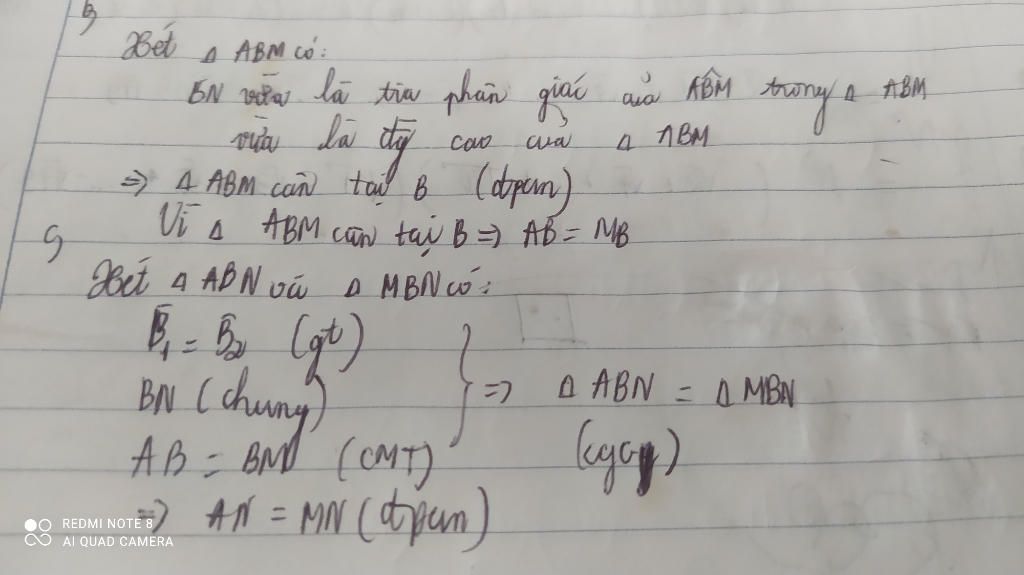 b,
Xét Δ ABM có:
BN vừa là tia phân giác của ABM̂ trong Δ ABM
vừa là đg cao của Δ ABM
=> Δ ABM cân tại B (đpcm)
c, Vì Δ ABM cân tại B => AB = MB
Xét Δ ABN và Δ MBN có:
B̂₁ = B̂₂ (gt)
BN (chung)
AB = BM (CMT)
=> Δ ABN = Δ MBN
(cgc)
=> AN = MN (đpcm)
REDMI NOTE 8
AI QUAD CAMERA